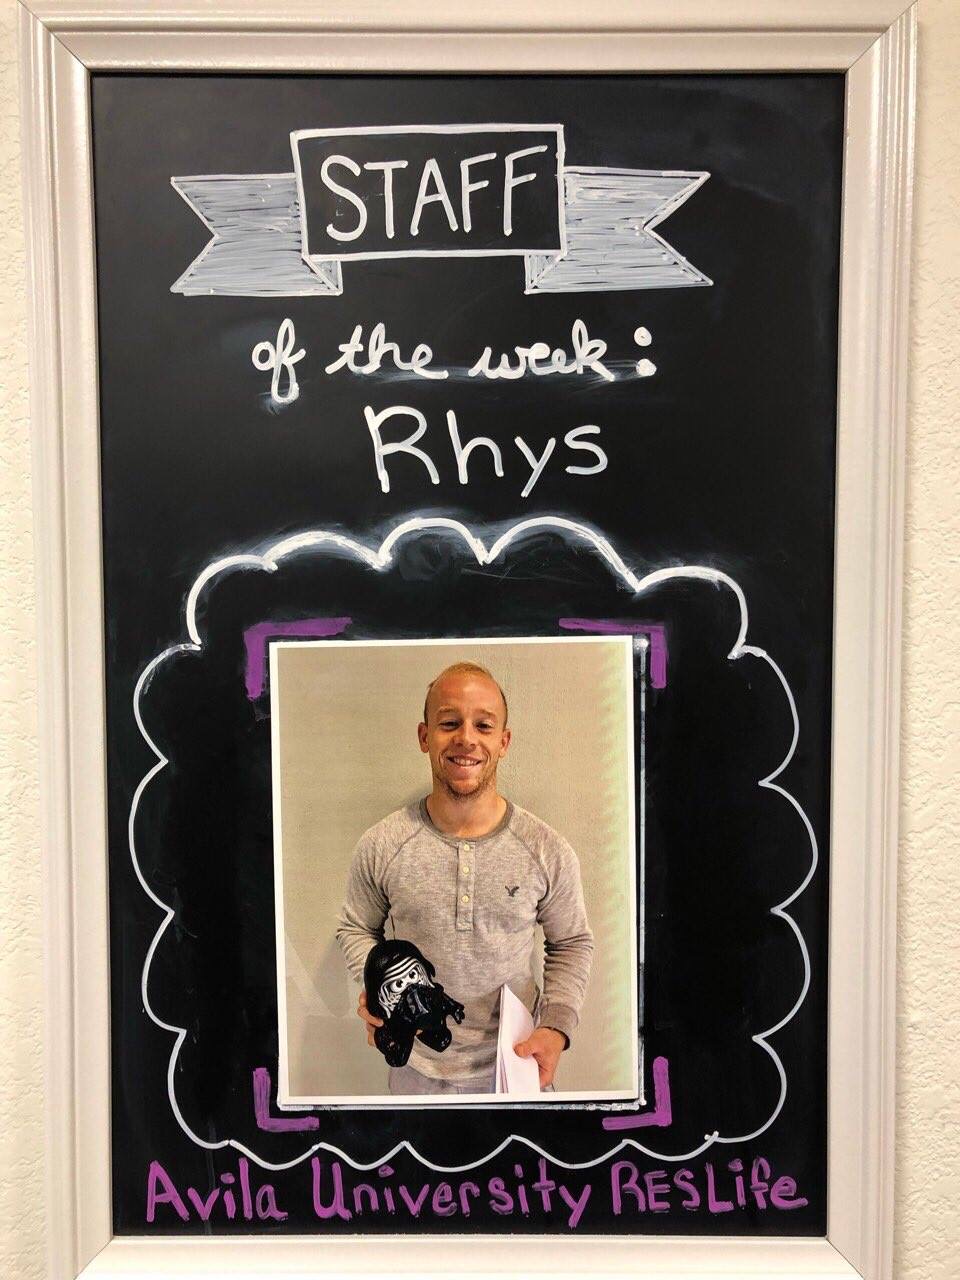 STAFF
of the week:
Rhys
Avila University RESLife